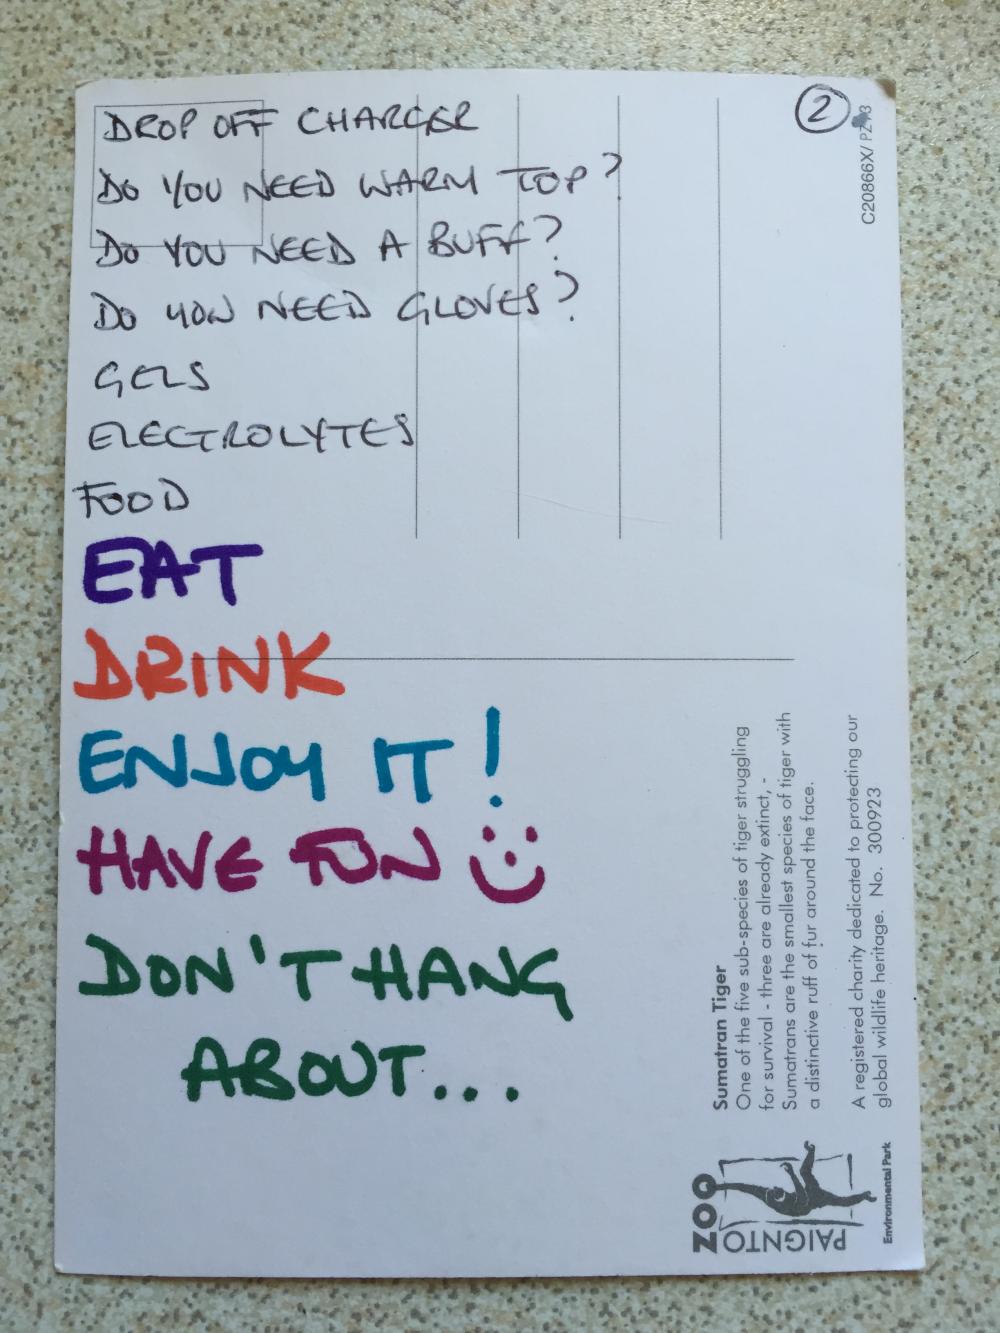 DROP OFF CHARGER
DO YOU NEED WARM TOP?
DO YOU NEED A BUFF?
DO YOU NEED GLOVES?
GELS
ELECTROLYTES
FOOD
EAT
DRINK
ENJOY IT!
HAVE FUN
DON'T HANG
ABOUT...
2
C20866X/ PZ
Sumatran Tiger
One of the five sub-species of tiger struggling
for survival - three are already extinct, -
Sumatrans are the smallest species of tiger with
a distinctive ruff of fur around the face.
A registered charity dedicated to protecting our
global wildlife heritage. No. 300923
PAIGNTO
ZOO
Environmental Park